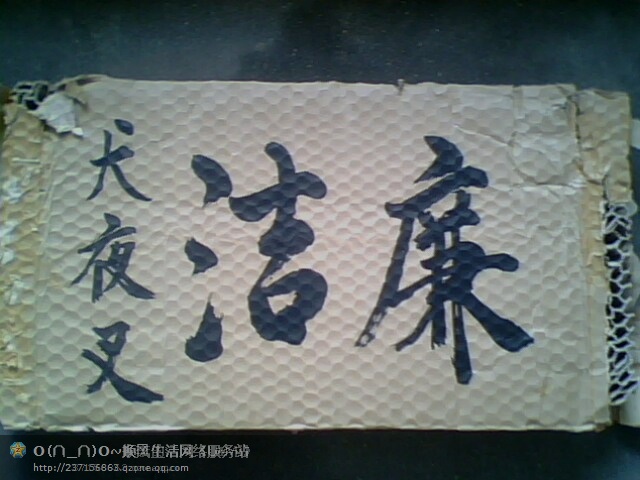 廉洁
犬夜叉
o(∩_∩)o~顺风生活网络服务站
http://237156863.qzone.qq.com